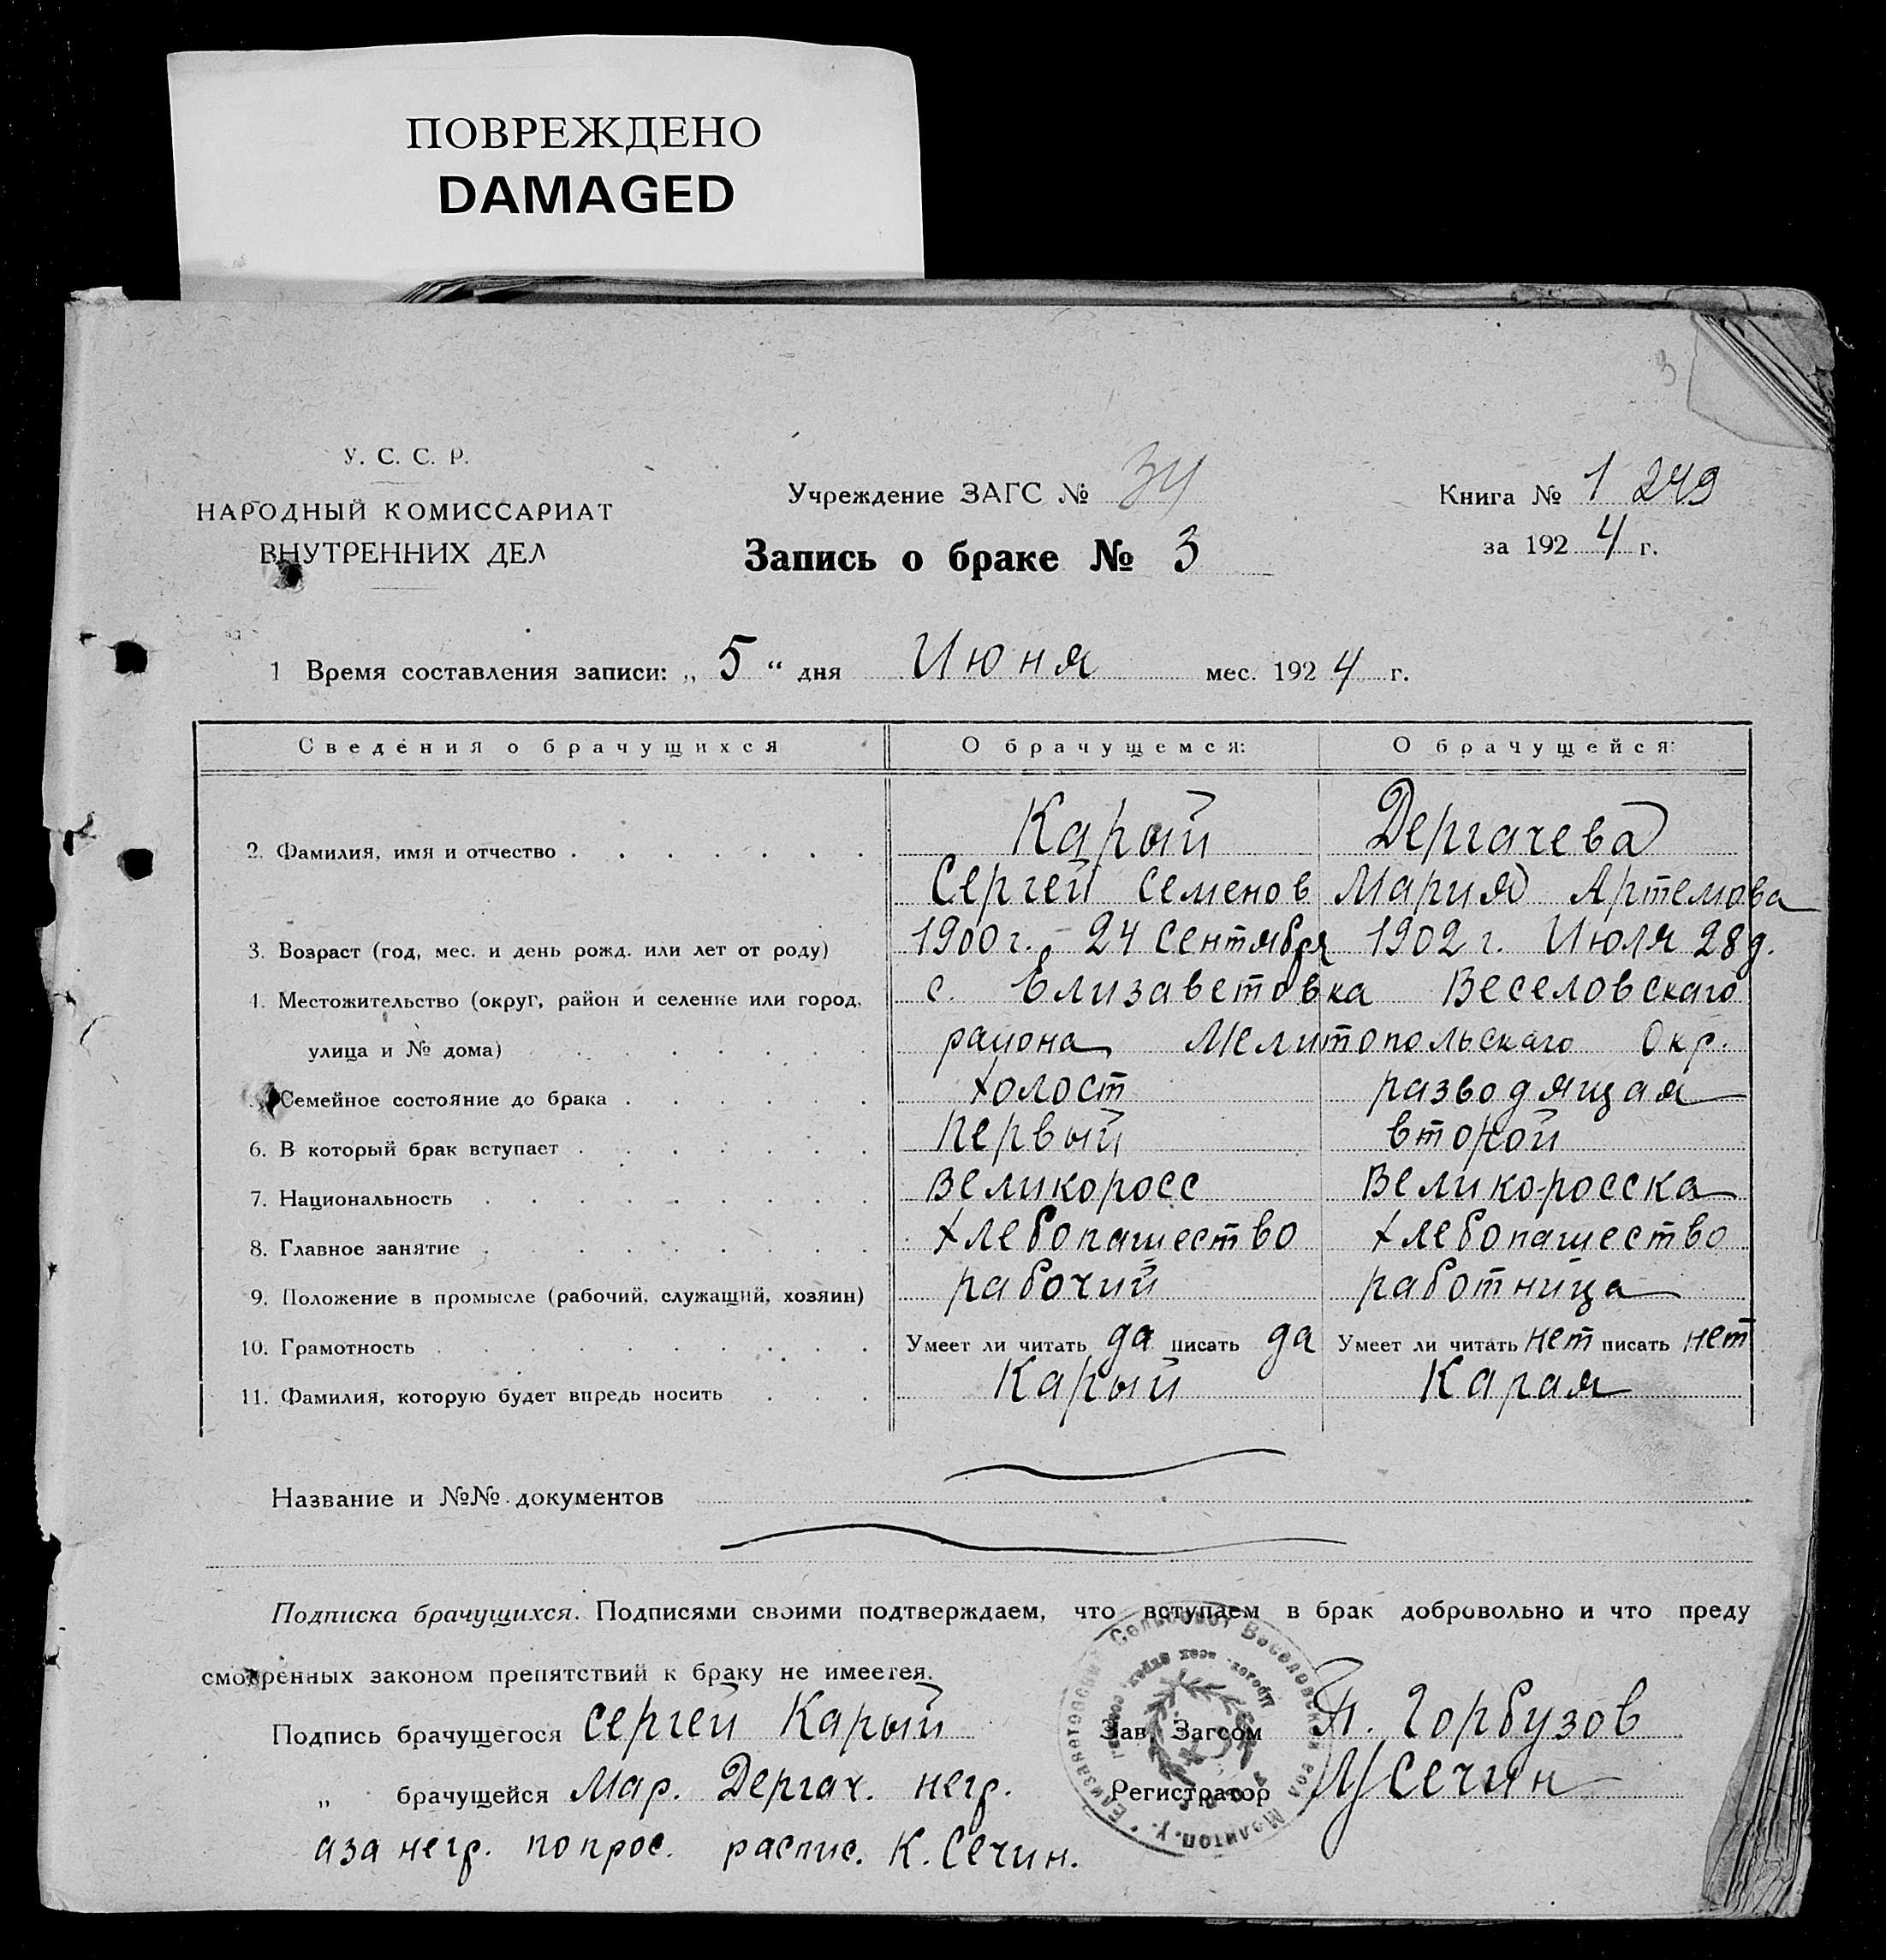 ПОВРЕЖДЕНО
DAMAGED
3
У. С. С. Р.
НАРОДНЫЙ КОМИССАРИАТ
ВНУТРЕННИХ ДЕЛ
Учреждение ЗАГС № 34
Запись о браке № 3
Книга № 1 249
за 1924 г.
1 Время составления записи: „ 5 “ дня Июня мес. 1924 г.
Сведения о брачущихся О брачущемся: О брачущейся:
2. Фамилия, имя и отчество Карый Дергачева
Сергей Семенов Мария Артемова
3. Возраст (год, мес. и день рожд. или лет от роду) 1900 г. 24 Сентября 1902 г. Июля 28 д.
4. Местожительство (округ, район и селение или город, с. Елизаветовка Веселовскаго
улица и № дома) района Мелитопольскаго Окр.
Семейное состояние до брака холост разводящая
6. В который брак вступает первый второй
7. Национальность великоросс Велико-росска
8. Главное занятие хлебопашество хлебопашество
9. Положение в промысле (рабочий, служащий, хозяин) рабочий работница
10. Грамотность Умеет ли читать да писать да Умеет ли читать нет писать нет
11. Фамилия, которую будет впредь носить Карый Карая
Название и №№ документов
Подписка брачущихся. Подписями своими подтверждаем, что вступаем в брак добровольно и что преду
смотренных законом препятствий к браку не имеется.
Подпись брачущегося Сергей Карый Зав. Загсом П. Горбузов
„ брачущейся Мар. Дергач. негр. Регистратор Сечин
аза негр. попрос. распис. К. Сечин.